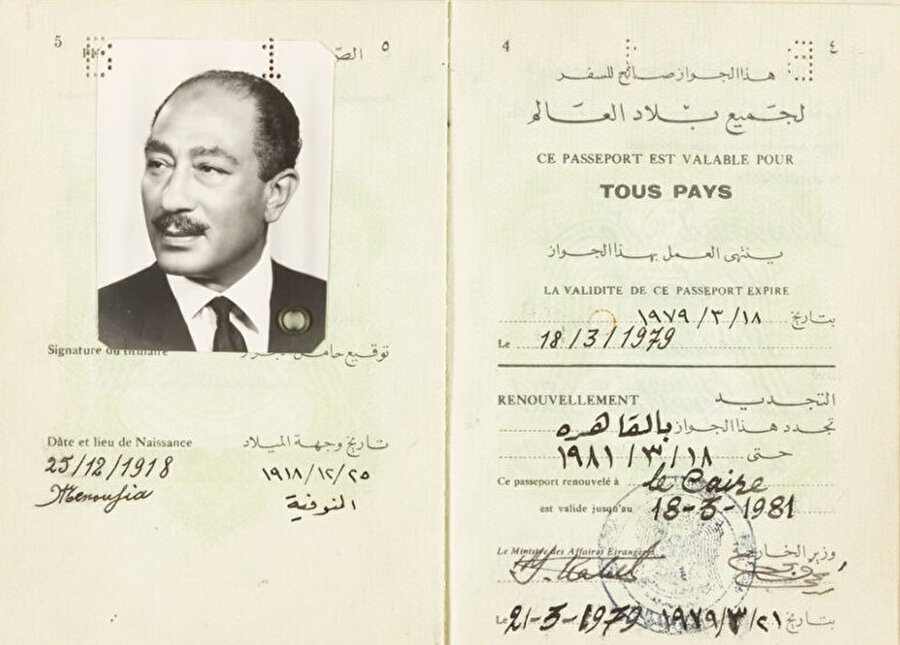 5
٥
Signature du titulaire
توقيع حامل
Dâte et lieu de Naissance
تاريخ وجهة الميلاد
25/12/1918
١٩١٨/١٢/٢٥
Menoufia
المنوفية
4
٤
هذا الجواز صالح للسفر
لجميع بلاد العالم
CE PASSEPORT EST VALABLE POUR
TOUS PAYS
ينتهى العمل بهذا الجواز
LA VALIDITE DE CE PASSEPORT EXPIRE
بتاريخ ١٩٧٩/٣/١٨
Le 18/3/1979
RENOUVELLEMENT
التجديد
تجدد هذا الجواز بالقاهره
حتى ١٩٨١/٣/١٨
Ce passeport renouvelé à le Caire
est valide jusqu'au 18-3-1981
Le Ministre des Affaires Etrangères
وزير الخارجية
Le 21-3-1979
بتاريخ ١٩٧٩/٣/٢١